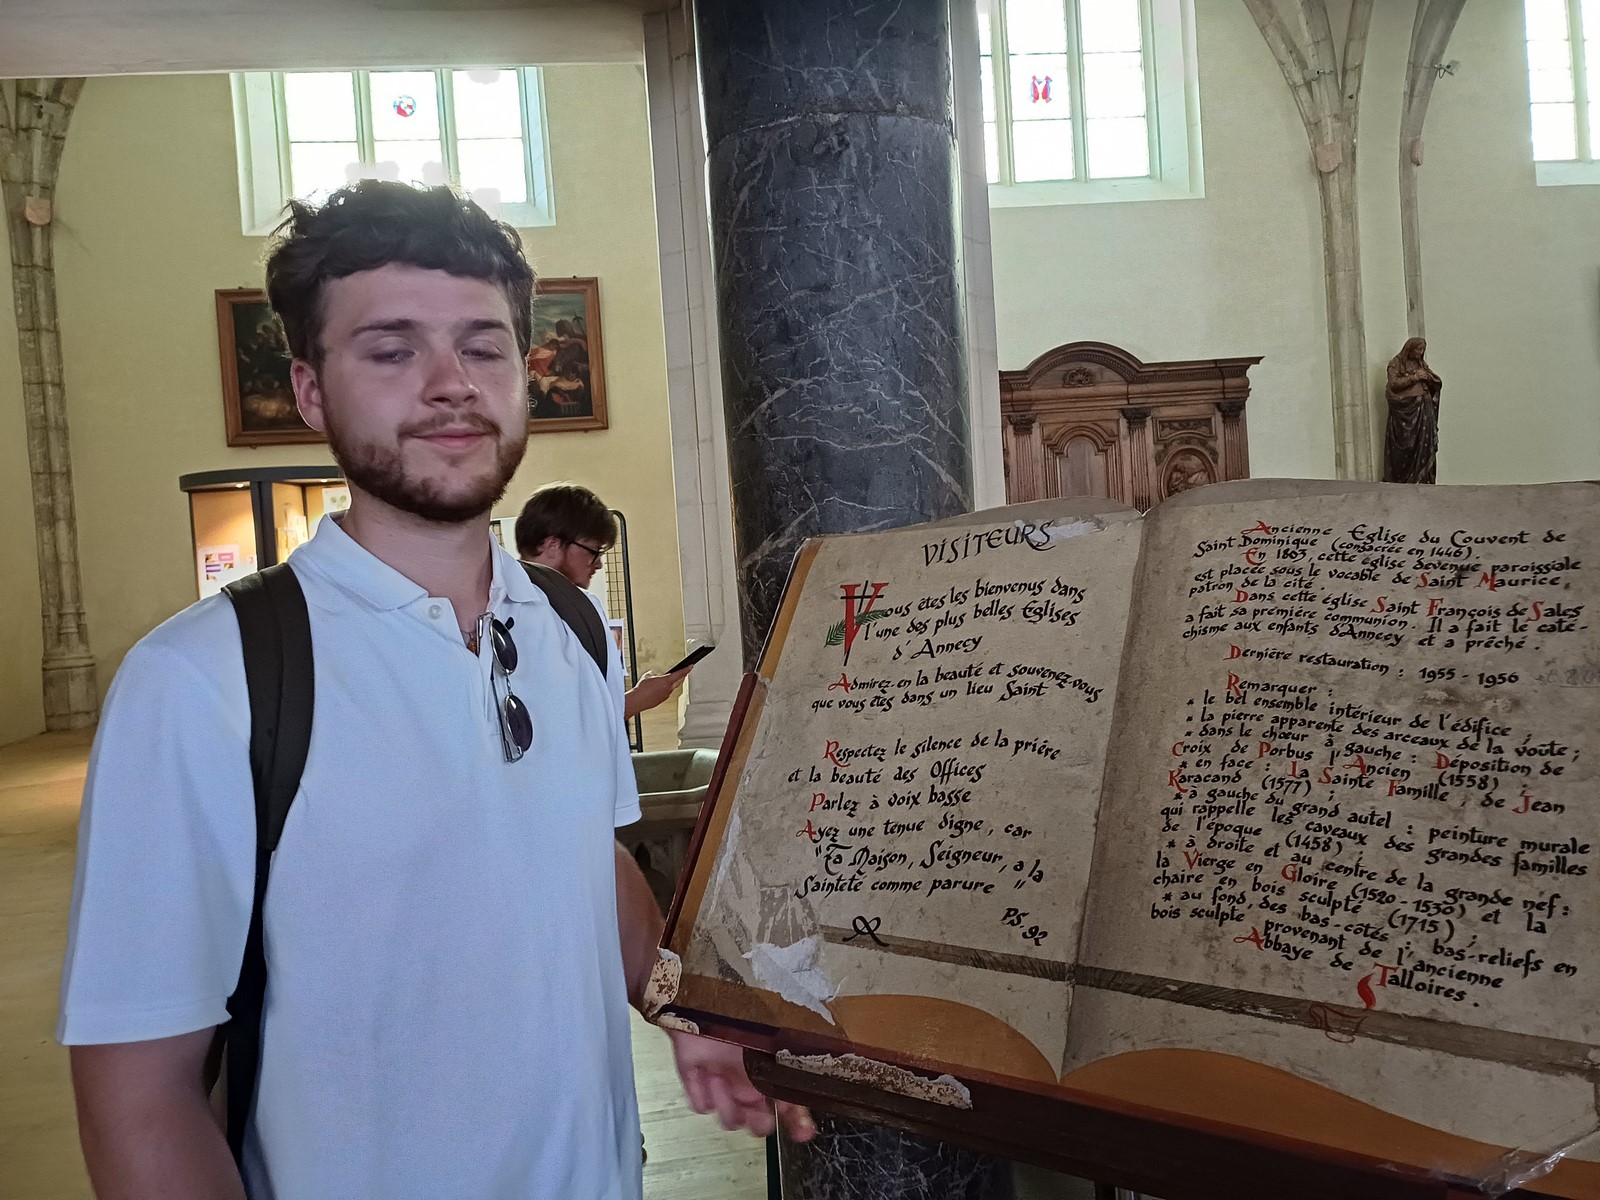 VISITEURS
Vous êtes les bienvenus dans
l'une des plus belles Églises
d'Annecy
Admirez-en la beauté et souvenez-vous
que vous êtes dans un lieu Saint
Respectez le silence de la prière
et la beauté des Offices
Parlez à voix basse
Ayez une tenue digne, car
"Ta Maison, Seigneur, a la
Sainteté comme parure "
PS. 92
Ancienne Église du Couvent de
Saint Dominique (consacrée en 1446).
En 1803, cette église devenue paroissiale
est placée sous le vocable de Saint Maurice,
patron de la cité.
Dans cette église Saint François de Sales
a fait sa première communion. Il a fait le caté-
chisme aux enfants d'Annecy et a prêché.
Dernière restauration : 1955 - 1956
Remarquer :
* le bel ensemble intérieur de l'édifice ;
* la pierre apparente des arceaux de la voûte ;
* dans le chœur à gauche : Déposition de
Croix de Porbus l'Ancien (1558) ;
* en face : La Sainte Famille, de Jean
Karacand (1577) ;
* à gauche du grand autel : peinture murale
qui rappelle les caveaux des grandes familles
de l'époque (1458) ;
* à droite et au centre de la grande nef :
la Vierge en Gloire (1520 - 1530) et la
chaire en bois sculpté (1715) ;
* au fond, des bas-côtés ; bas-reliefs en
bois sculpté provenant de l'ancienne
Abbaye de Talloires.